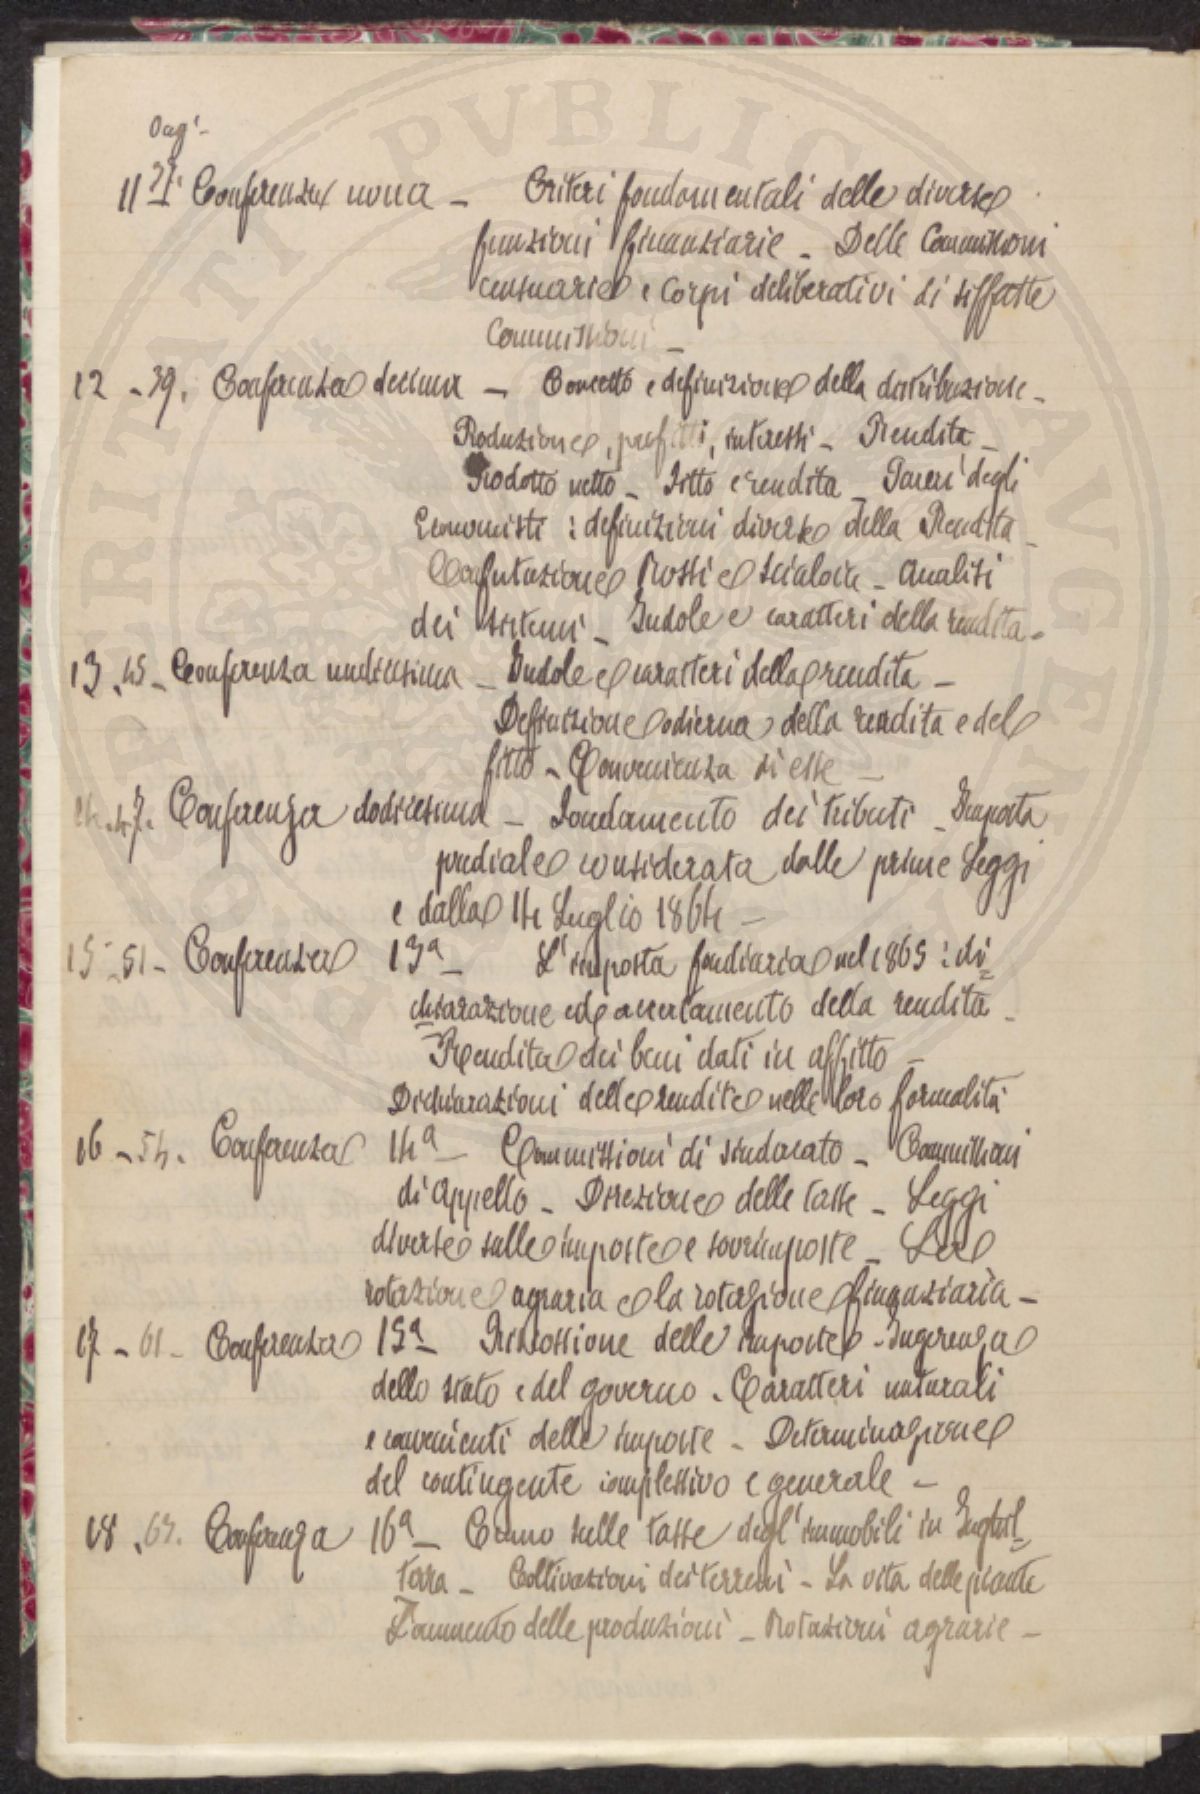 Pag.
11 37. Conferenza nona - Criteri fondamentali delle diverse
funzioni finanziarie - Delle Commissioni
censuarie e Corpi deliberativi di siffatte
Commissioni -
12 - 39. Conferenza decima - Concetto e definizione della distribuzione -
Produzione, profitti, interessi - Rendita -
Prodotto netto - Fitto e rendita - Pareri degli
Economisti : definizioni diverse della Rendita -
Confutazione Rossi e Scialoia - Analisi
dei sistemi - Indole e caratteri della rendita -
13 - 45 - Conferenza undicesima - Indole e caratteri della rendita -
Definizione odierna della rendita e del
fitto - Convenienza di esse -
14 - 47. Conferenza dodicesima - Fondamento dei tributi - Imposta
prediale considerata dalle prime Leggi
e dalla 14 Luglio 1864 -
15 - 51 - Conferenza 13ª - L'imposta fondiaria nel 1865 : di=
chiarazione ed accertamento della rendita -
Rendita dei beni dati in affitto -
Dichiarazioni delle rendite nelle loro formalità
16 - 54. Conferenza 14ª - Commissioni di sindacato - Commissioni
di Appello - Direzione delle tasse - Leggi
diverse sulle imposte e sovrimposte - La
rotazione agraria e la rotazione finanziaria -
17 - 61 - Conferenza 15ª - Riscossione delle imposte - Ingerenza
dello stato e del governo - Caratteri naturali
e convenienti delle imposte - Determinazione
del contingente complessivo e generale -
18 - Conferenza 16ª - Cenno sulle tasse degl'immobili in Inghil=
terra - Coltivazioni dei terreni - La vita delle piante
L'aumento delle produzioni - Rotazioni agrarie -
PVBLIC
AVGEN
PROSPERITATI